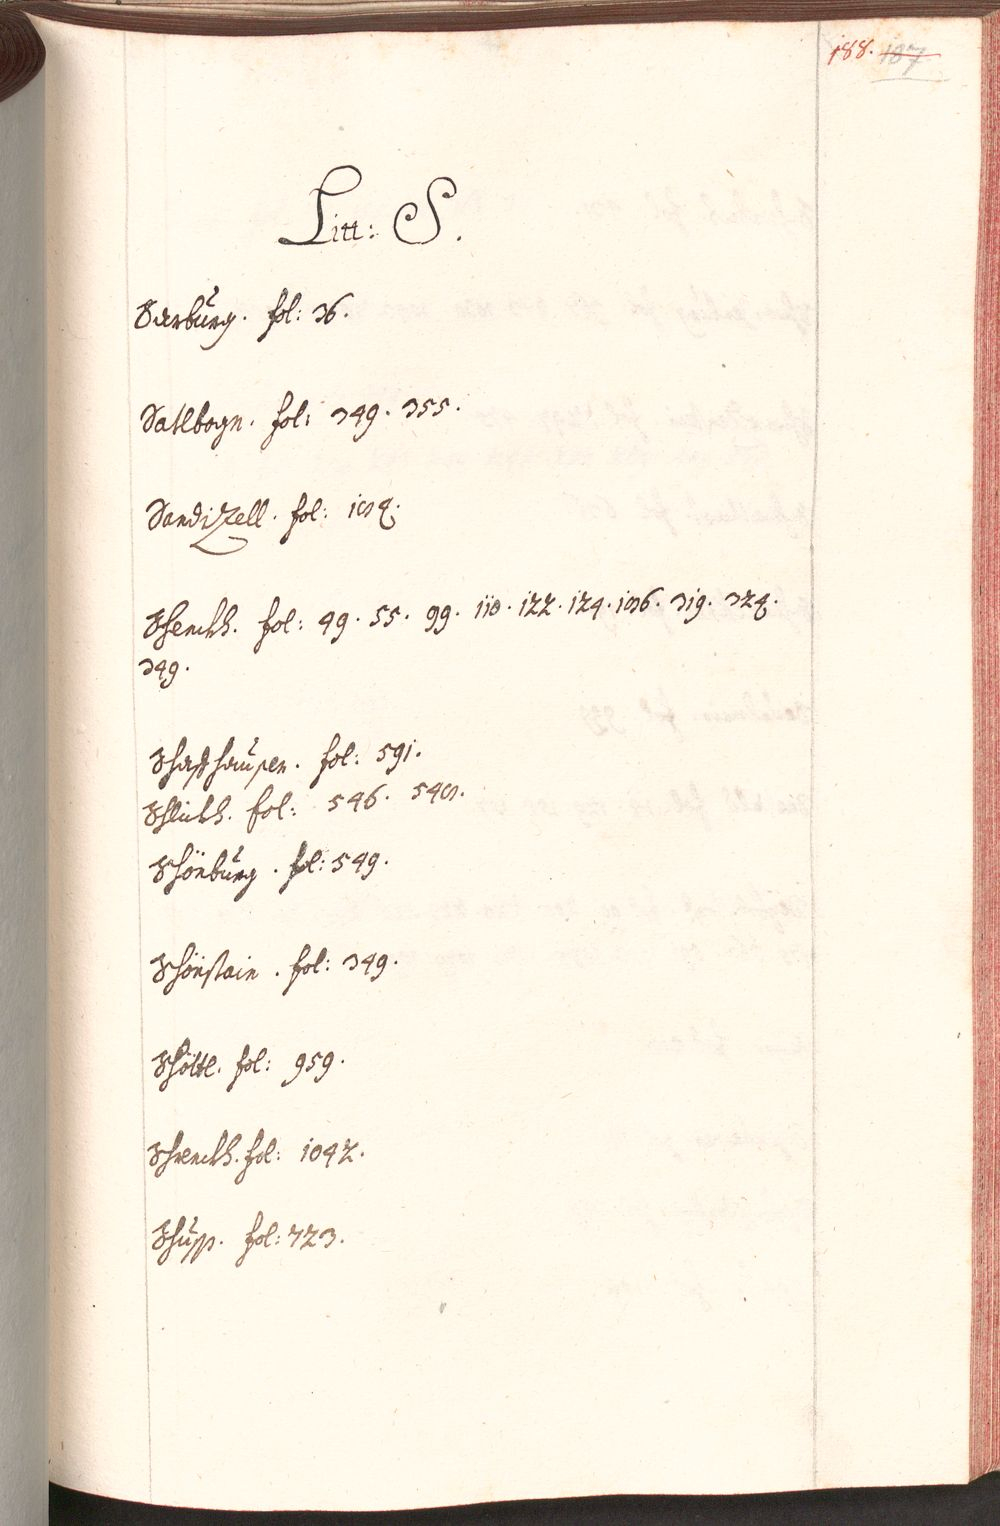 188. 187
Litt: S.
Sarburg. fol: 36.
Satlbogn. fol: 349. 355.
Sandizell. fol: 
Schenckh. fol: 49. 55. 99. 110. 122. 124. 136. 319. 324.
349.
Schaffhausen. fol: 591.
Schlickh. fol: 546.
Schönburg. fol: 549.
Schönstain. fol: 349.
Schöttl. fol: 959.
Schrenckh. fol: 1042.
Schupp. fol: 723.